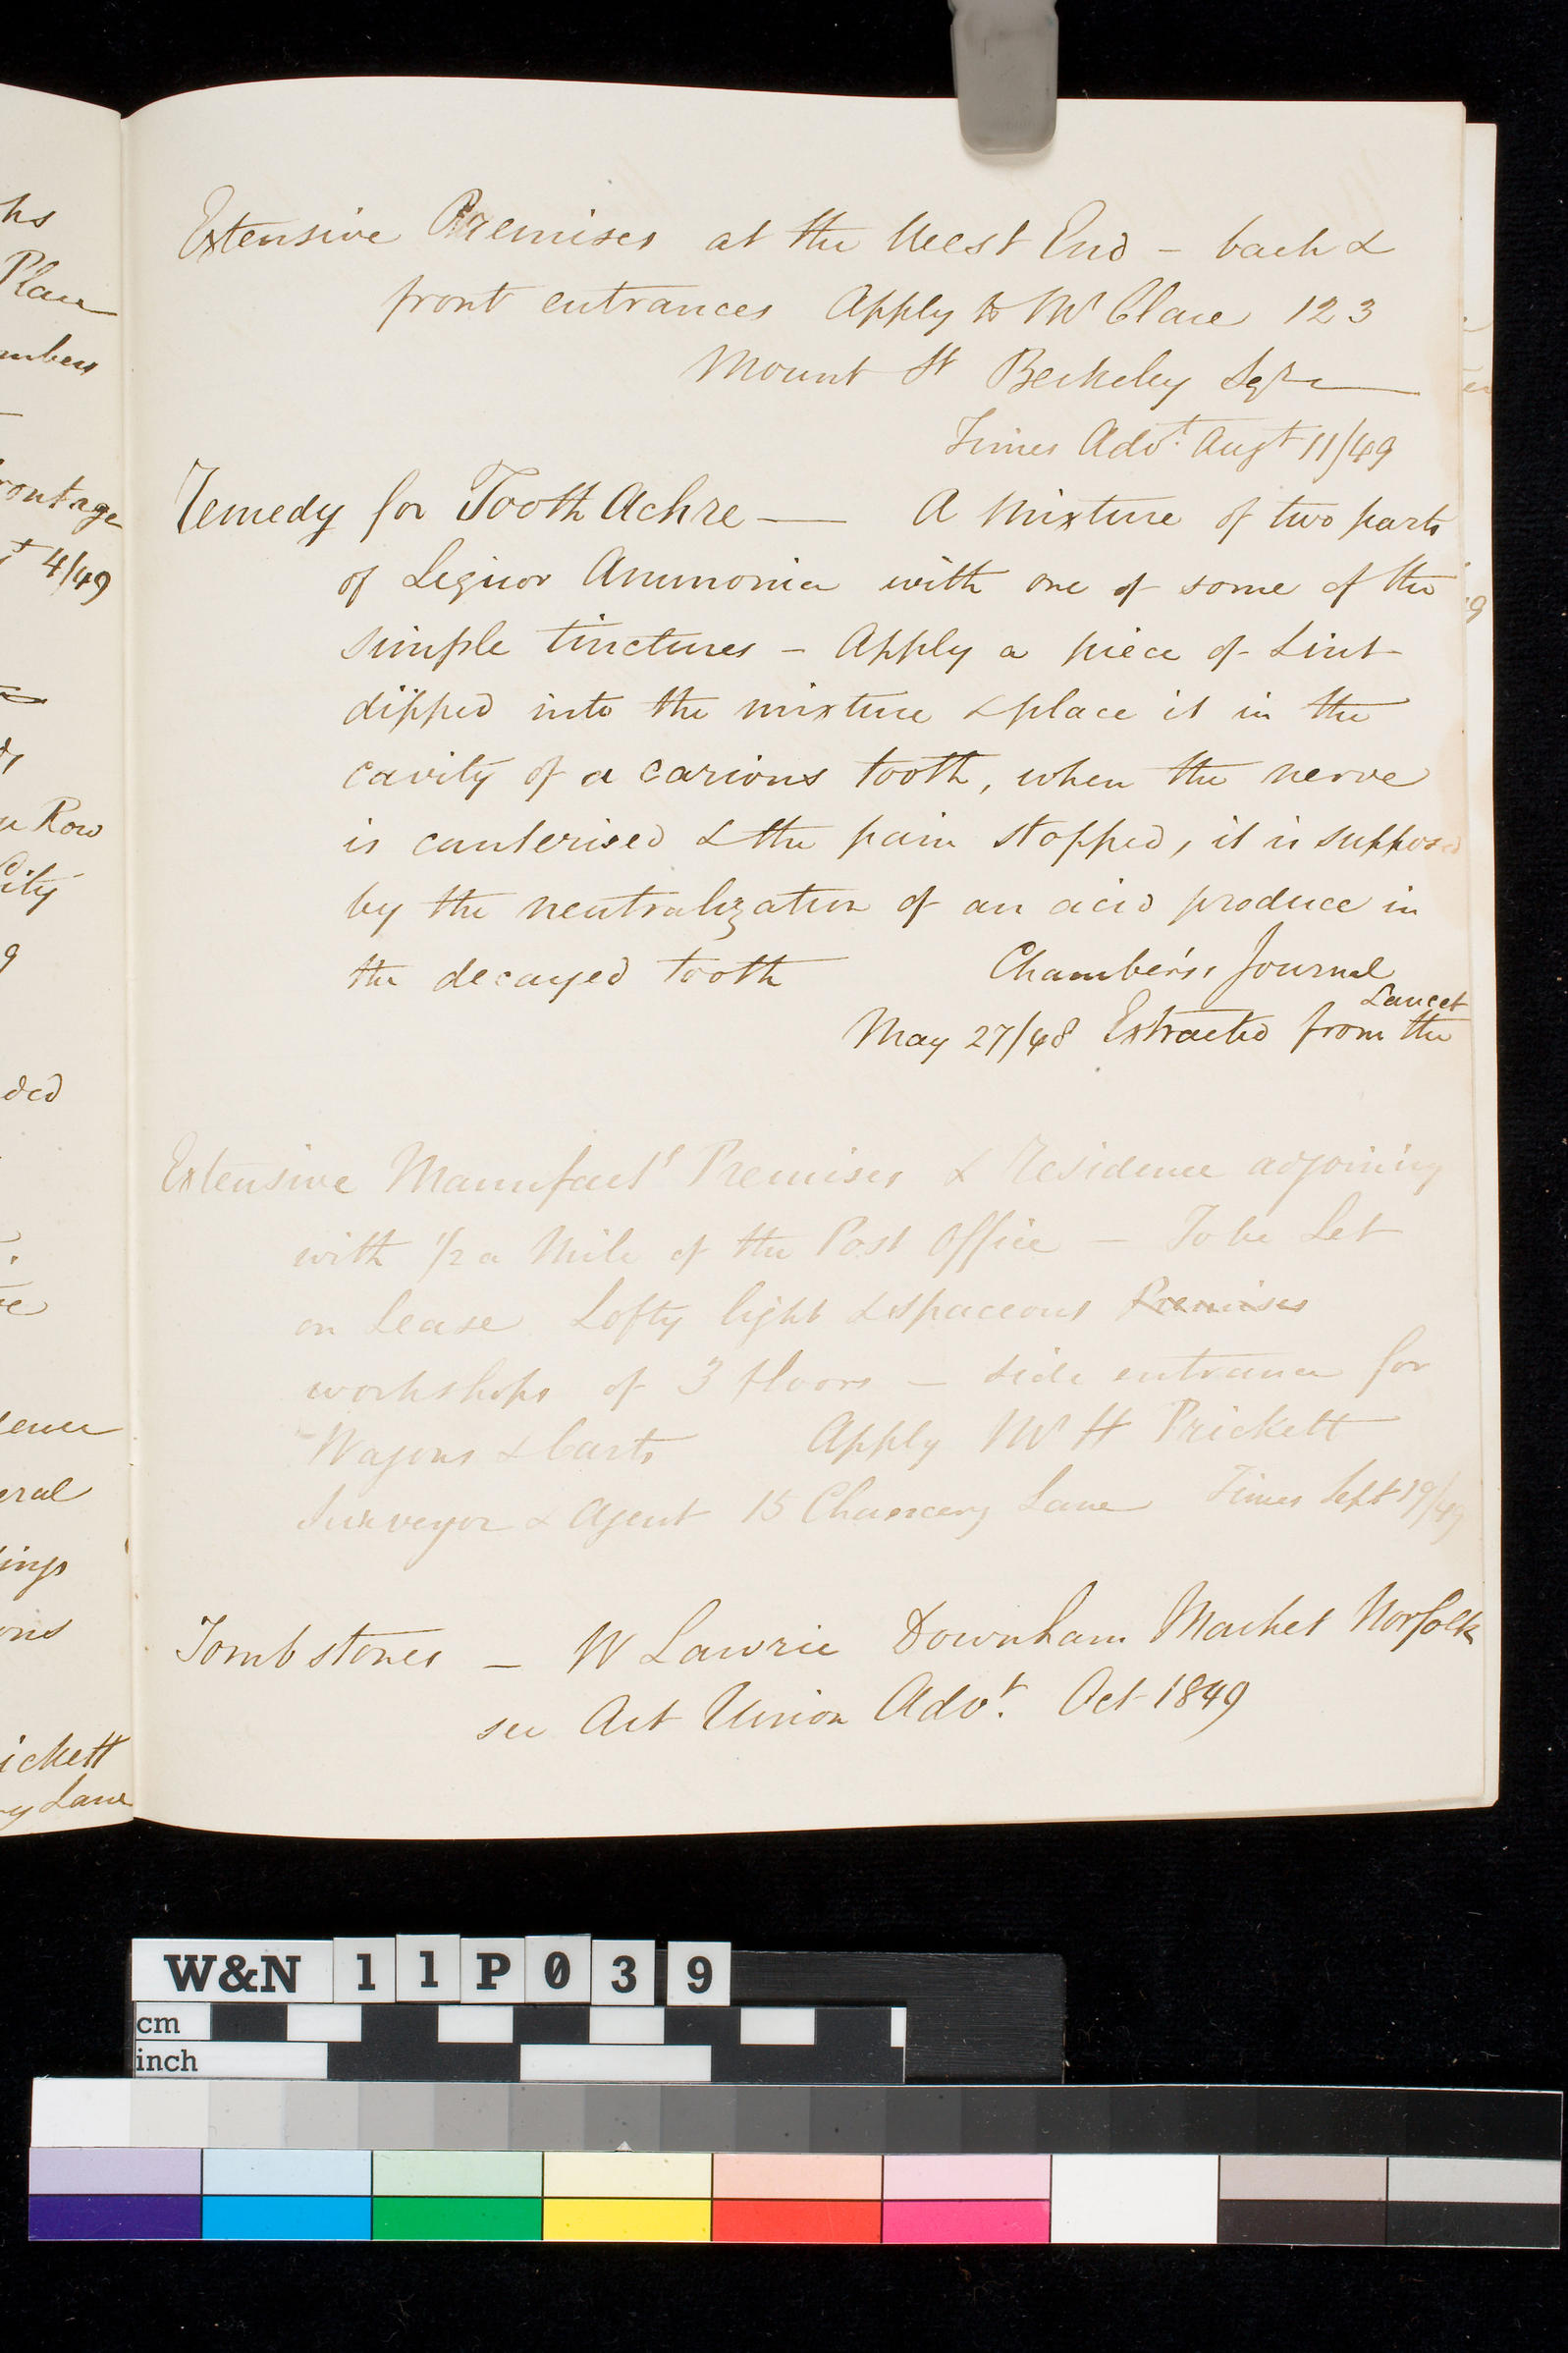 Extensive Premises at the West End - back &
front entrances Apply to Mr Clare 123
Mount St Berkeley Sqre
Times Advt. Augt 11/49
Remedy for Tooth Achre — A Mixture of two parts
of Liquor Ammonia with one of some of the
simple tinctures - Apply a piece of Lint
dipped into the mixture & place it in the
cavity of a carious tooth, when the nerve
is cauterised & the pain stopped, it is supposed
by the neutralization of an acid produce in
the decayed tooth Chambers's Journal
May 27/48 Extracted from the Lancet
Extensive Manufacts Premises & Residence adjoining
with 1/2 a Mile of the Post Office - To be Let
on Lease Lofty light & spaceous Premises
workshops of 3 floors - side entrance for
Wagons & Carts Apply Mr H Prickett
Surveyor & Agent 15 Chancery Lane Times Sept 19/49
Tombstones - W Lawrie Downham Market Norfolk
see Art Union Advt. Oct 1849
hs
Plan
ambers
rontage
4/49
Row
City
9
ded
dence
eral
ings
ons
ickett
ry Lane
W&N 11P039
cm
inch